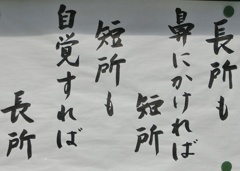 長所も
鼻にかければ
短所
短所も
自覚すれば
長所